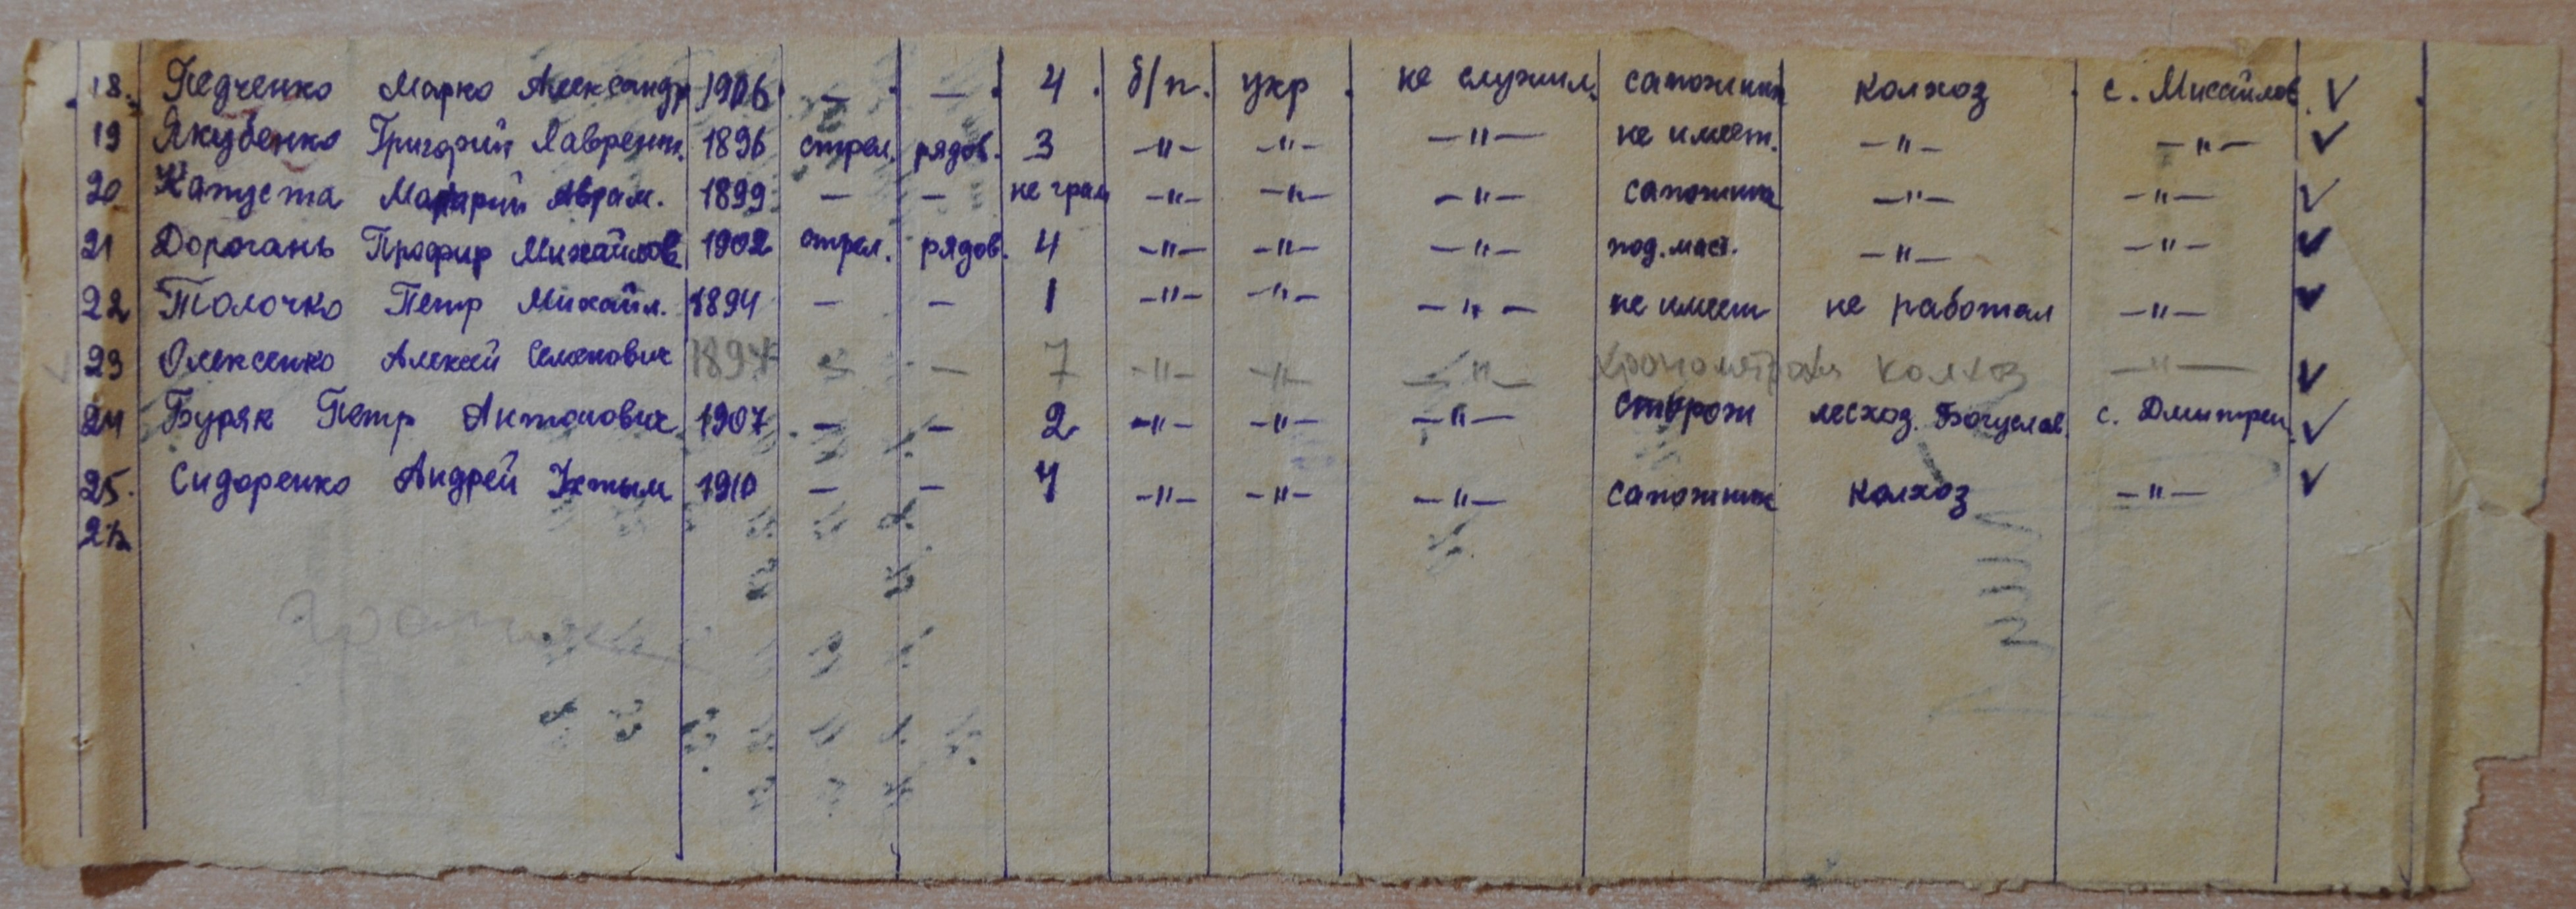 18. Педченко Марко Александр. 1906 — — 4 б/п. укр не служил. сапожник колхоз с. Михайлов. ✓
19 Якубенко Григорий Лаврент. 1896 стрел. рядов. 3 —"— —"— —"— не имеет. —"— —"— ✓
20 Капуста Аврам. 1899 — — не грам —"— —"— —"— сапожник —"— —"— ✓
21 Дорогань Профир Михайлов. 1902 стрел. рядов. 4 —"— —"— —"— под. маст. —"— —"— ✓
22 Толочко Петр Михайл. 1894 — — 1 —"— —"— —"— не имеет не работал —"— ✓
23 Олексенко Алексей Семенович — — 7 —"— —"— —"— колхоз —"— ✓
24 Буряк Петр Антонович 1907 — — 2 —"— —"— —"— сторож лесхоз. Богуслав. с. Дмитрен. ✓
25. Сидоренко Андрей Ихтым 1910 — — 4 —"— —"— —"— сапожник колхоз —"— ✓